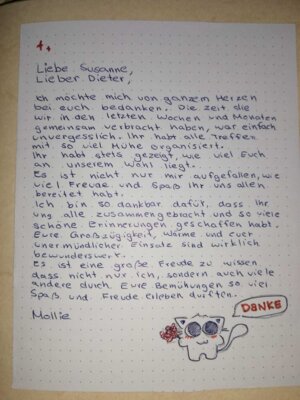 1.
Liebe Susanne,
Lieber Dieter,
Ich möchte mich von ganzem Herzen
bei euch bedanken. Die Zeit die
wir in den letzten Wochen und Monaten
gemeinsam verbracht haben, war einfach
unvergesslich. Ihr habt alle Treffen
mit so viel Mühe organisiert.
Ihr habt stets gezeigt, wie viel Euch
an unserem Wohl liegt.
Es ist nicht nur mir aufgefallen, wie
viel Freude und Spaß Ihr uns allen
bereitet habt.
Ich bin so dankbar dafür, dass Ihr
uns alle zusammengebracht und so viele
schöne Erinnerungen geschaffen habt.
Eure Großzügigkeit, Wärme und euer
unermüdlicher Einsatz sind wirklich
bewundernswert.
Es ist eine große Freude zu wissen
dass nicht nur ich, sondern auch viele
andere durch Eure Bemühungen so viel
Spaß und Freude erleben durften.
Mollie
DANKE